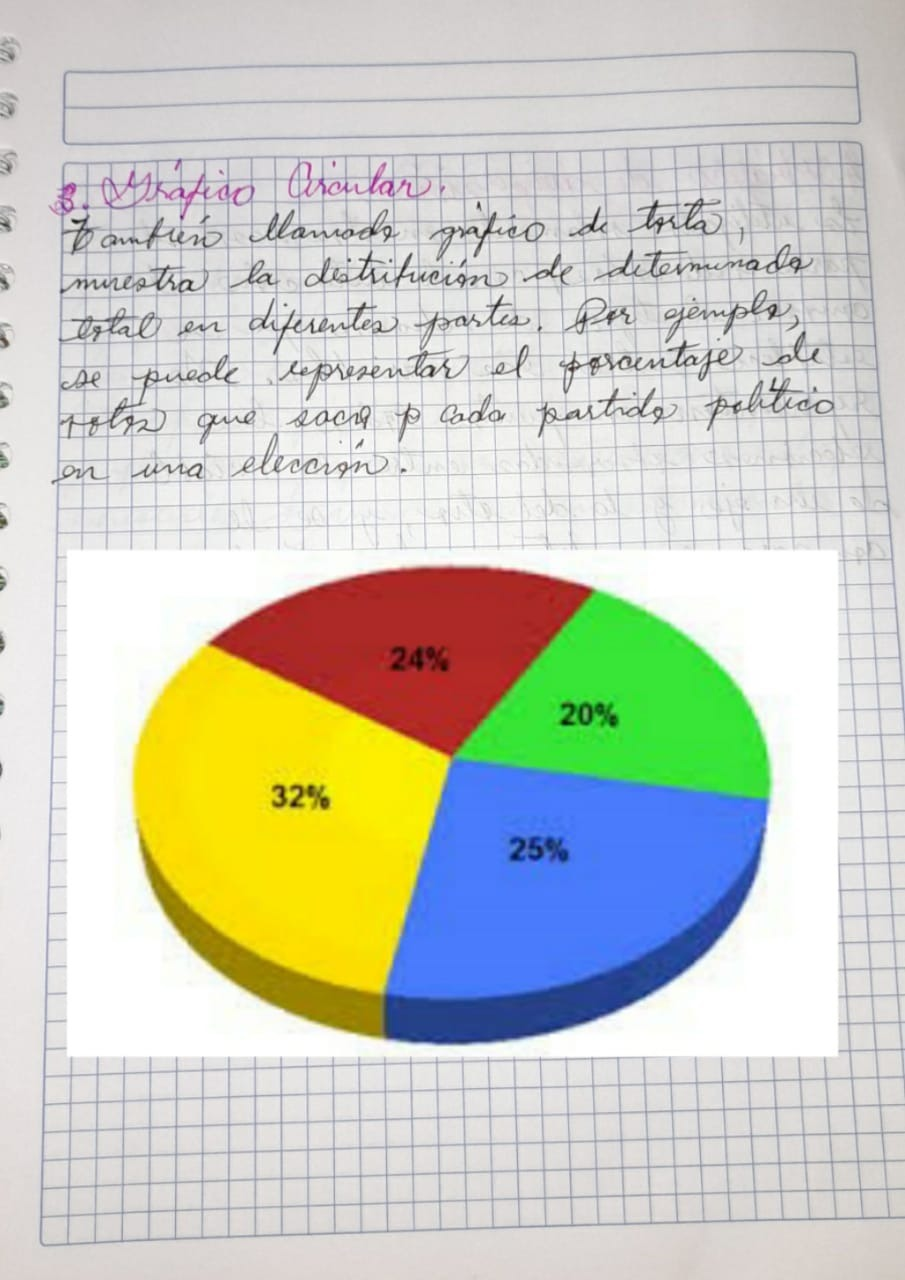 3. Gráfico Circular.
También llamado gráfico de torta,
muestra la distribución de determinado
total en diferentes partes. Por ejemplo,
se puede representar el porcentaje de
votos que saca p cada partido político
en una elección.
24%
20%
32%
25%